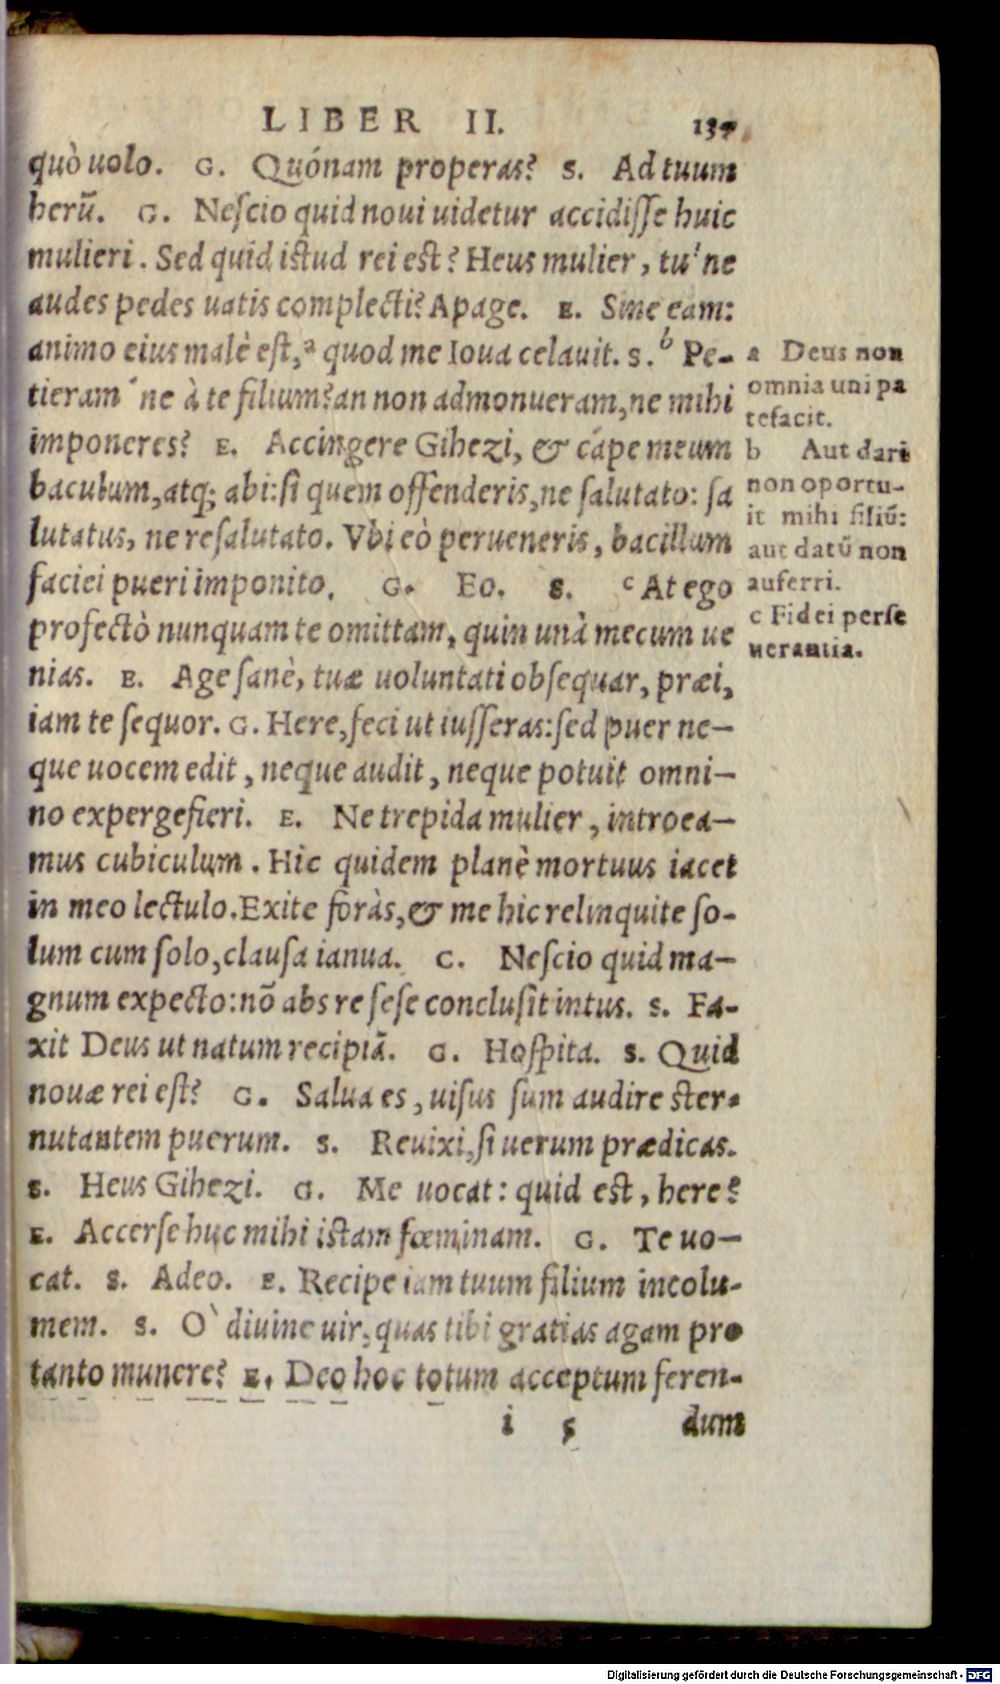 LIBER II.
quò uolo. G. Quónam properas? S. Ad tuum
herū. G. Nescio quid noui uidetur accidisse huic
mulieri. Sed quid istud rei est? Heus mulier, tu'ne
audes pedes uatis complecti? Apage. E. Sine eam:
animo eius malè est,ᵃ quod me Ioua celauit. S. ᵇ Pe-
tieram'ne à te filium? an non admonueram, ne mihi
imponeres? E. Accingere Gihezi, & cápe meum
baculum, atq; abi: si quem offenderis, ne salutato: sa
lutatus, ne resalutato. Vbi eò perueneris, bacillum
faciei pueri imponito. G. Eo. S. ᶜ At ego
profectò nunquam te omittam, quin unà mecum ue
nias. E. Age sanè, tuæ uoluntati obsequar, præi,
iam te sequor. G. Here, feci ut iusseras: sed puer ne-
que uocem edit, neque audit, neque potuit omni-
no expergefieri. E. Ne trepida mulier, introea-
mus cubiculum. Hic quidem planè mortuus iacet
in meo lectulo. Exite foràs, & me hic relinquite so-
lum cum solo, clausa ianua. C. Nescio quid ma-
gnum expecto: nō abs re sese conclusit intus. S. Fa-
xit Deus ut natum recipiā. G. Hospita. S. Quid
nouæ rei est? G. Salua es, uisus sum audire ster-
nutantem puerum. S. Reuixi, si uerum prædicas.
E. Heus Gihezi. G. Me uocat: quid est, here?
E. Accerse huc mihi istam fœminam. G. Te uo-
cat. S. Adeo. E. Recipe iam tuum filium incolu-
mem. S. O` diuine uir, quas tibi gratias agam pro
tanto munere? E. Deo hoc totum acceptum feren-
i 5 dum
a Deus non
omnia uni pa
tefacit.
b Aut dari
non oportu-
it mihi filiū:
aut datū non
auferri.
c Fidei perse
uerantia.
Digitalisierung gefördert durch die Deutsche Forschungsgemeinschaft - DFG